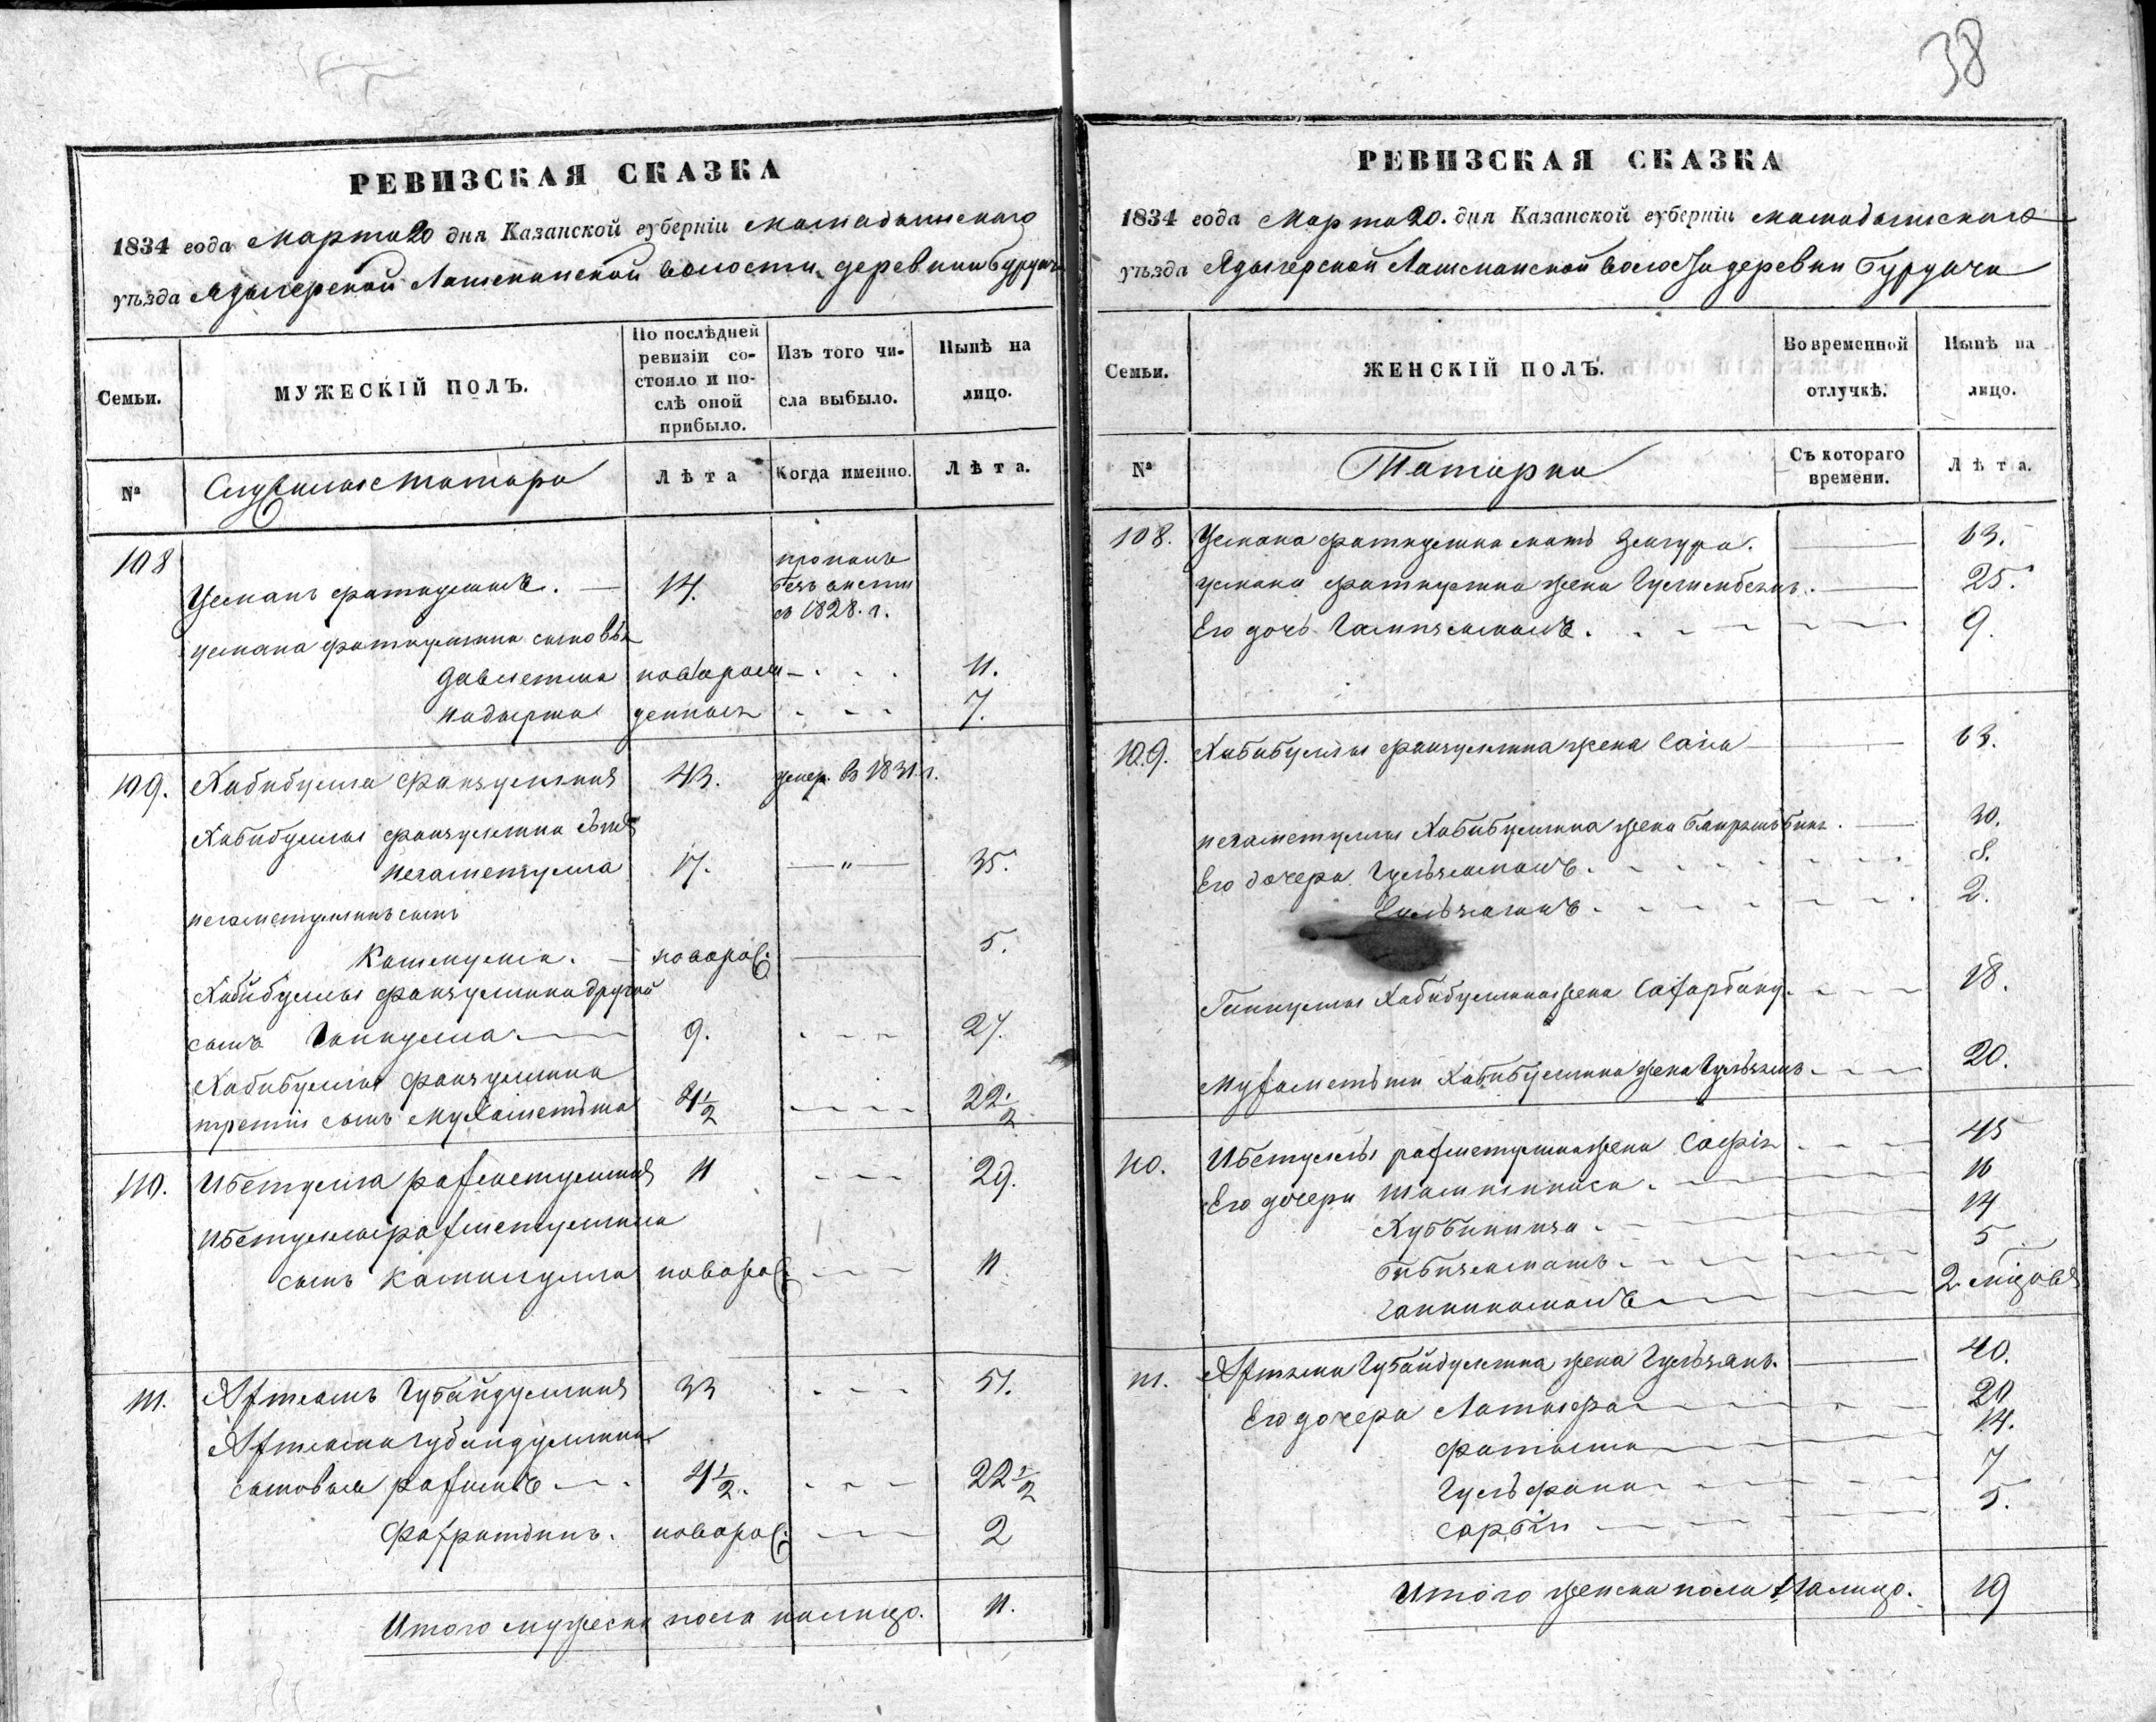 38
РЕВИЗСКАЯ СКАЗКА
1834 года Марта 20 дня Казанской губерніи Мамадышскаго
уѣзда Ядыгерской Лашманской волости деревни Бурдучи
Семьи.
МУЖЕСКІЙ ПОЛЪ.
По послѣдней ревизіи состояло и послѣ оной прибыло.
Изъ того числа выбыло.
Нынѣ на лицо.
№
Служилые татара
Лѣта
Когда именно.
Лѣта.
108
Усманъ Фаткулинъ. 14. пропалъ безъ вести въ 1828. г.
Усмана Фаткулина сыновья
Давлетша новорож- 11.
Надырша денные 7.
109. Хабибулла Файзуллинъ 43. умер. въ 1831 г.
Хабибуллы Файзуллина сынъ
Незаметулла 17. — " — 35.
Незаметуллинъ сынъ
Кашмулла. новорож. 5.
Хабибуллы Файзуллина другой
сынъ Ганнулла 9. 27.
Хабибуллы Файзуллина
третій сынъ Мухаметша 4½ 22½
110. Ибетулла Рахметуллинъ 11 29.
Ибетуллы Рахметуллина
сынъ Калимулла новорож. 11
111. Ахтямъ Губайдуллинъ 33 51.
Ахтяма Губайдуллина
сыновья Рахимъ 4½. 22½
Фахратдинъ. новорож. 2
Итого мужеска пола налицо. 11.
РЕВИЗСКАЯ СКАЗКА
1834 года Марта 20. дня Казанской губерніи Мамадышскаго
уѣзда Ядыгерской Лашманской волости деревни Бурдучи
Семьи.
ЖЕНСКІЙ ПОЛЪ.
Во временной отлучкѣ.
Нынѣ на лицо.
№
Татарки
Съ котораго времени.
Лѣта.
108. Усмана Фаткулина мать Зюгура. 63.
Усмана Фаткулина жена 25.
Его дочь Галиязамалъ. 9.
109. Хабибуллы Файзуллина жена Сагы 63.
Незаметуллы Хабибуллина жена 30.
Его дочери Гульзамалъ. 8.
2.
Ганнуллы Хабибуллина жена Сахарбану. 18.
Мухаметьши Хабибуллина жена 20.
110. Ибетуллы Рахметуллина жена Сафія 45
Его дочери 16
14
Бибизамалъ. 5
2 мѣсяцовъ
111. Ахтяма Губайдуллина жена Гульзянъ. 40.
Его дочери Латыфа 20
Фатыма 14.
Гульфана 7
Сарбіи 5.
Итого женска пола налицо. 19